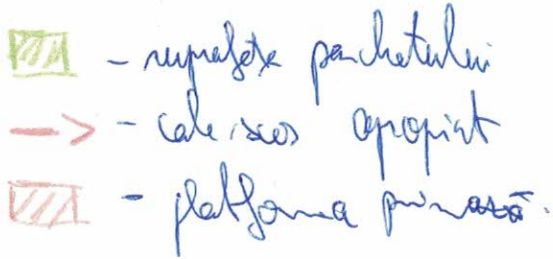 - suprafața parchetului
- cale scos apropiat
- platforma primară.